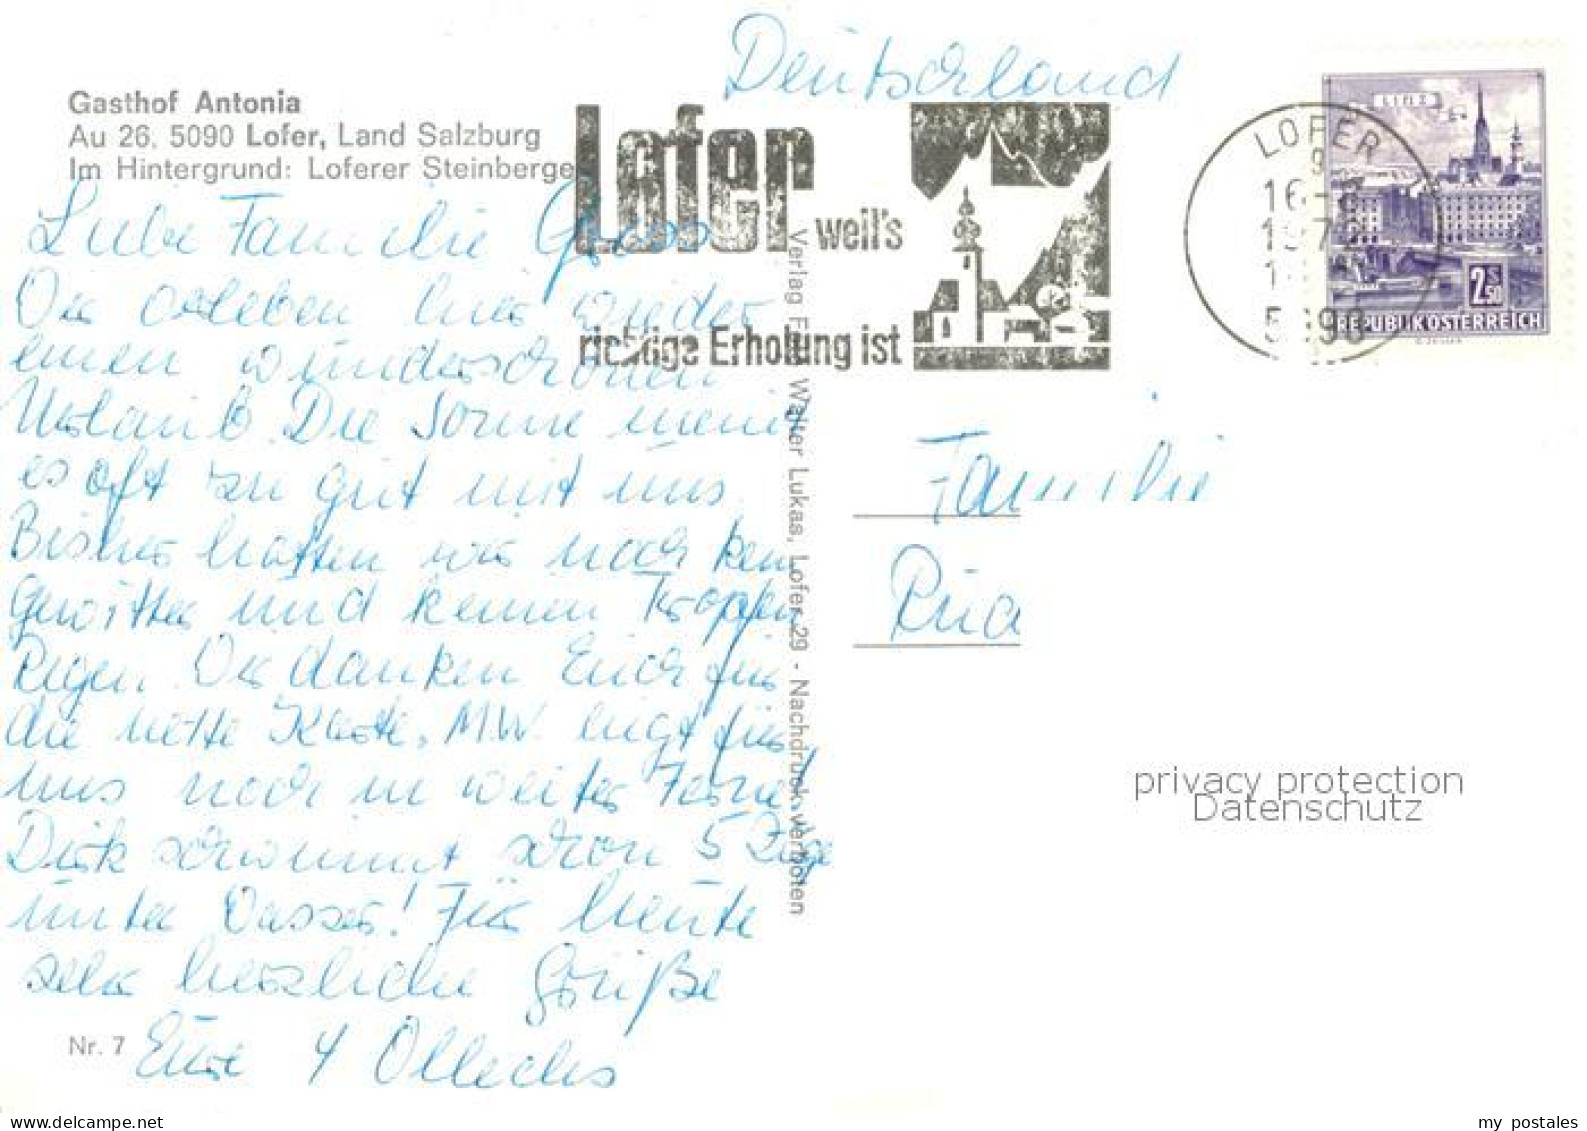 Deutschland
Gasthof Antonia
Au 26, 5090 Lofer, Land Salzburg
Im Hintergrund: Loferer Steinberge
Lofer weil's
richtige Erholung ist
LOFER
LINZ
2.50
REPUBLIK ÖSTERREICH
Liebe Familie
Wir erleben hier wieder
einen wunderschönen
Urlaub. Die Sonne meint
es oft zu gut mit uns.
Bisher hatten wir noch kein
Gewitter und keinen Tropfen
Regen. Wir danken Euch für
die nette Karte. M.W. liegt für
uns noch in weiter Ferne.
Dirk schwimmt schon 5 Züge
unter Wasser! Für heute
sehr herzliche Grüße
Eure 4
Nr. 7
Verlag Walter Lukas, Lofer 29 - Nachdruck verboten
Familie
privacy protection
Datenschutz
my postales